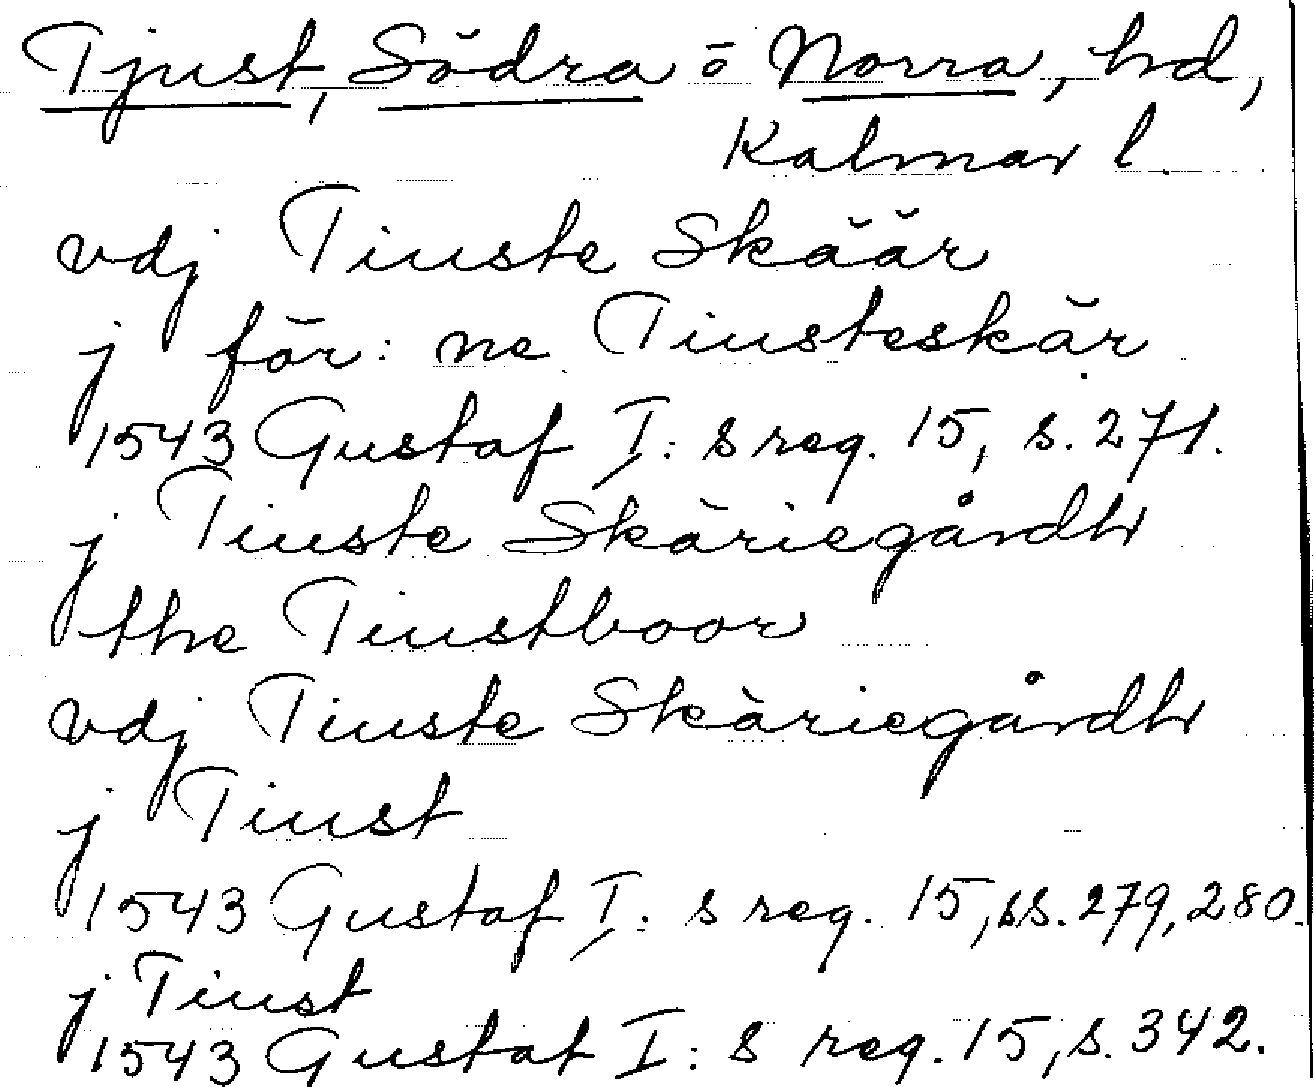 Tjust, Södra o Norra, hd,
Kalmar l.
vdj Tiuste Skäär
j för: ne Tiusteskär
1543 Gustaf I: s reg. 15, s. 271.
j Tiuste Skäriegårdh
the Tiustboor
vdj Tiuste Skäriegårdh
j Tiust
1543 Gustaf I: s reg. 15, ss. 279, 280.
j Tiust
1543 Gustaf I: s reg. 15, s. 342.